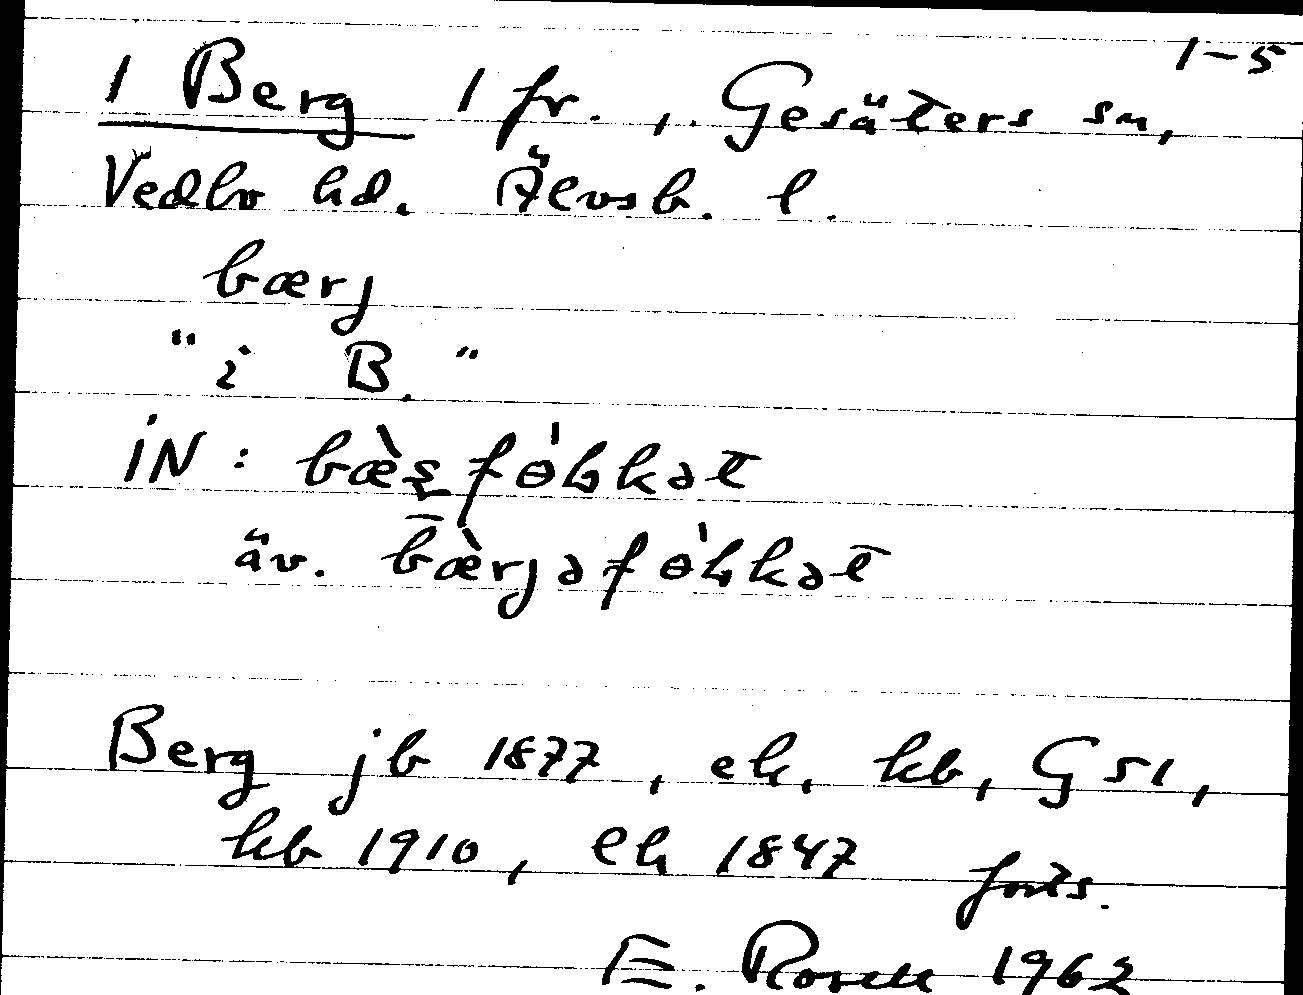 1-5
1 Berg 1 fr., Gesäters sn,
Vedbo hd. Älvsb. l.
bærj
"i B."
iN:
äv.
Berg jb 1877, ek, kb, G 51,
kb 1910, ek 1847 forts.
E. Rosell 1962